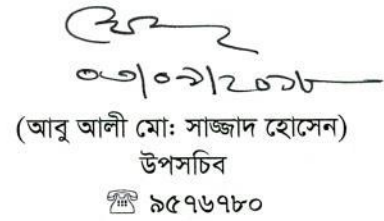 ০৩/০৯/২০১৮
(আবু আলী মো: সাজ্জাদ হোসেন)
উপসচিব
☎ ৯৫৭৬৭৮০